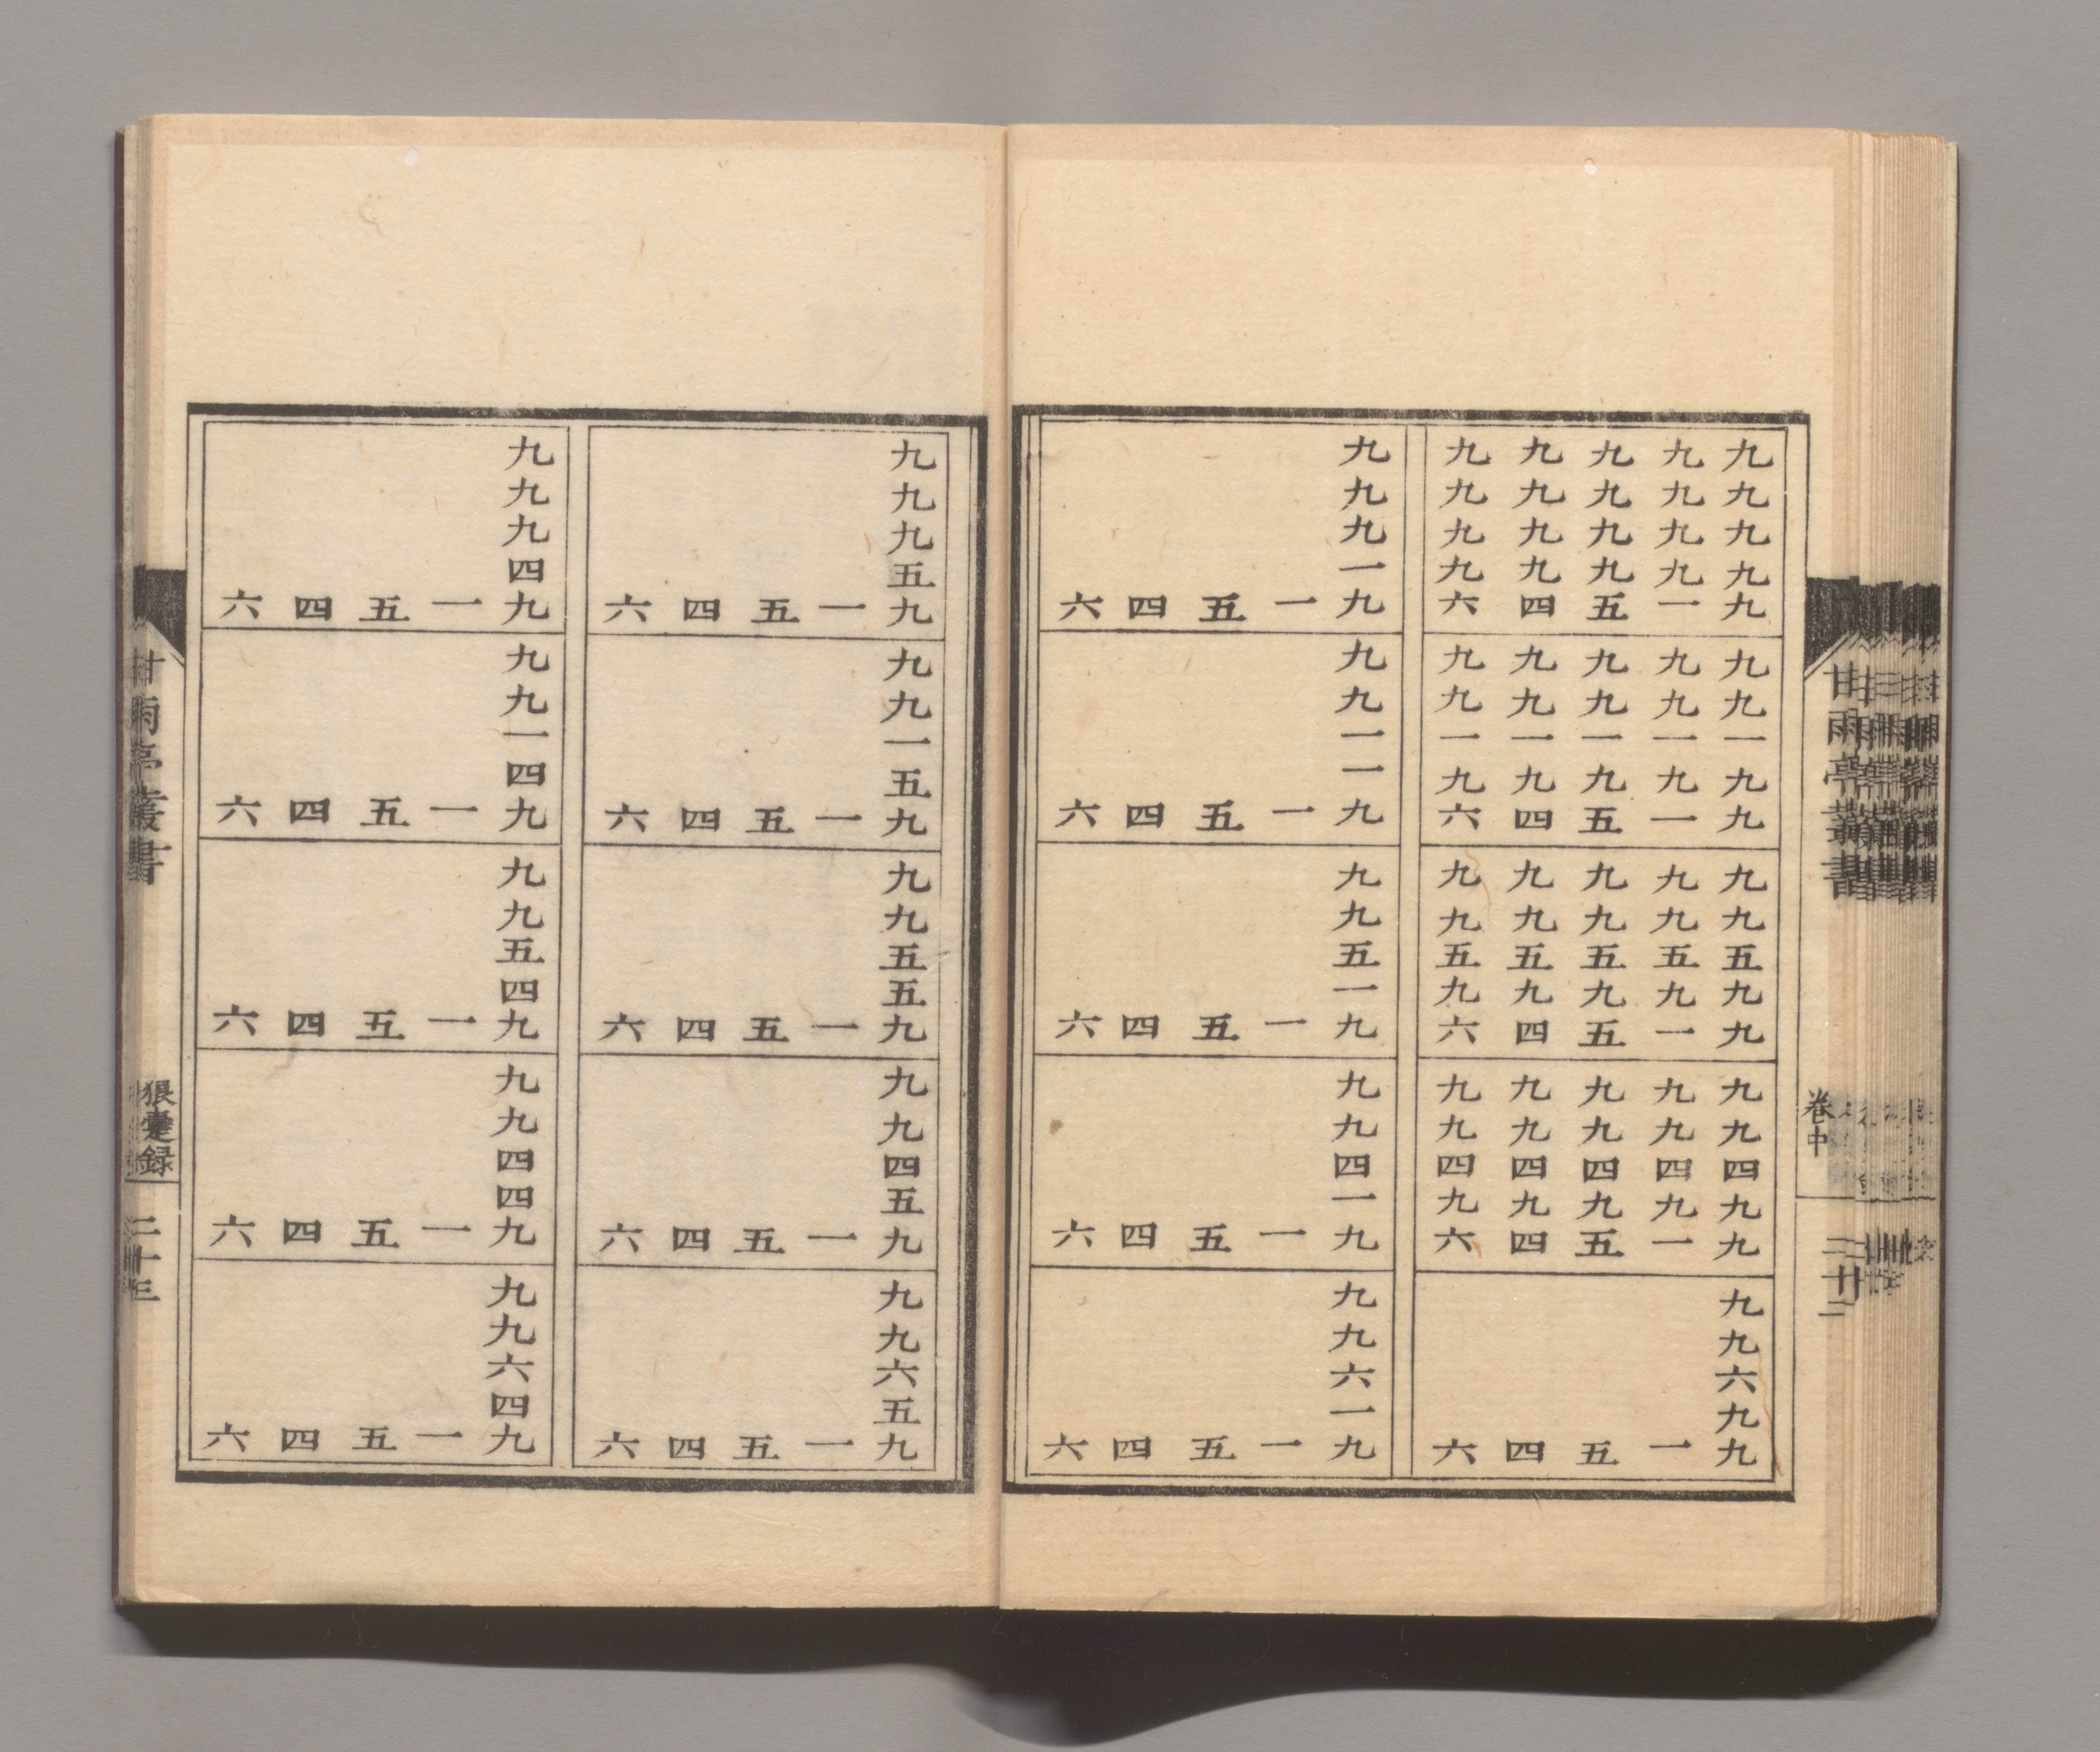 甘雨亭叢書
卷中
九九九九九
九九九九一
九九九九五
九九九九四
九九九九六
九九一九九
九九一九一
九九一九五
九九一九四
九九一九六
九九五九九
九九五九一
九九五九五
九九五九四
九九五九六
九九四九九
九九四九一
九九四九五
九九四九四
九九四九六
九九六九九
一
五
四
六
九九九一九
一
五
四
六
九九一一九
一
五
四
六
九九五一九
一
五
四
六
九九四一九
一
五
四
六
九九六一九
一
五
四
六
九九九五九
一
五
四
六
九九一五九
一
五
四
六
九九五五九
一
五
四
六
九九四五九
一
五
四
六
九九六五九
一
五
四
六
九九九四九
一
五
四
六
九九一四九
一
五
四
六
九九五四九
一
五
四
六
九九四四九
一
五
四
六
九九六四九
一
五
四
六
甘雨亭叢書
狼疐録
二十三